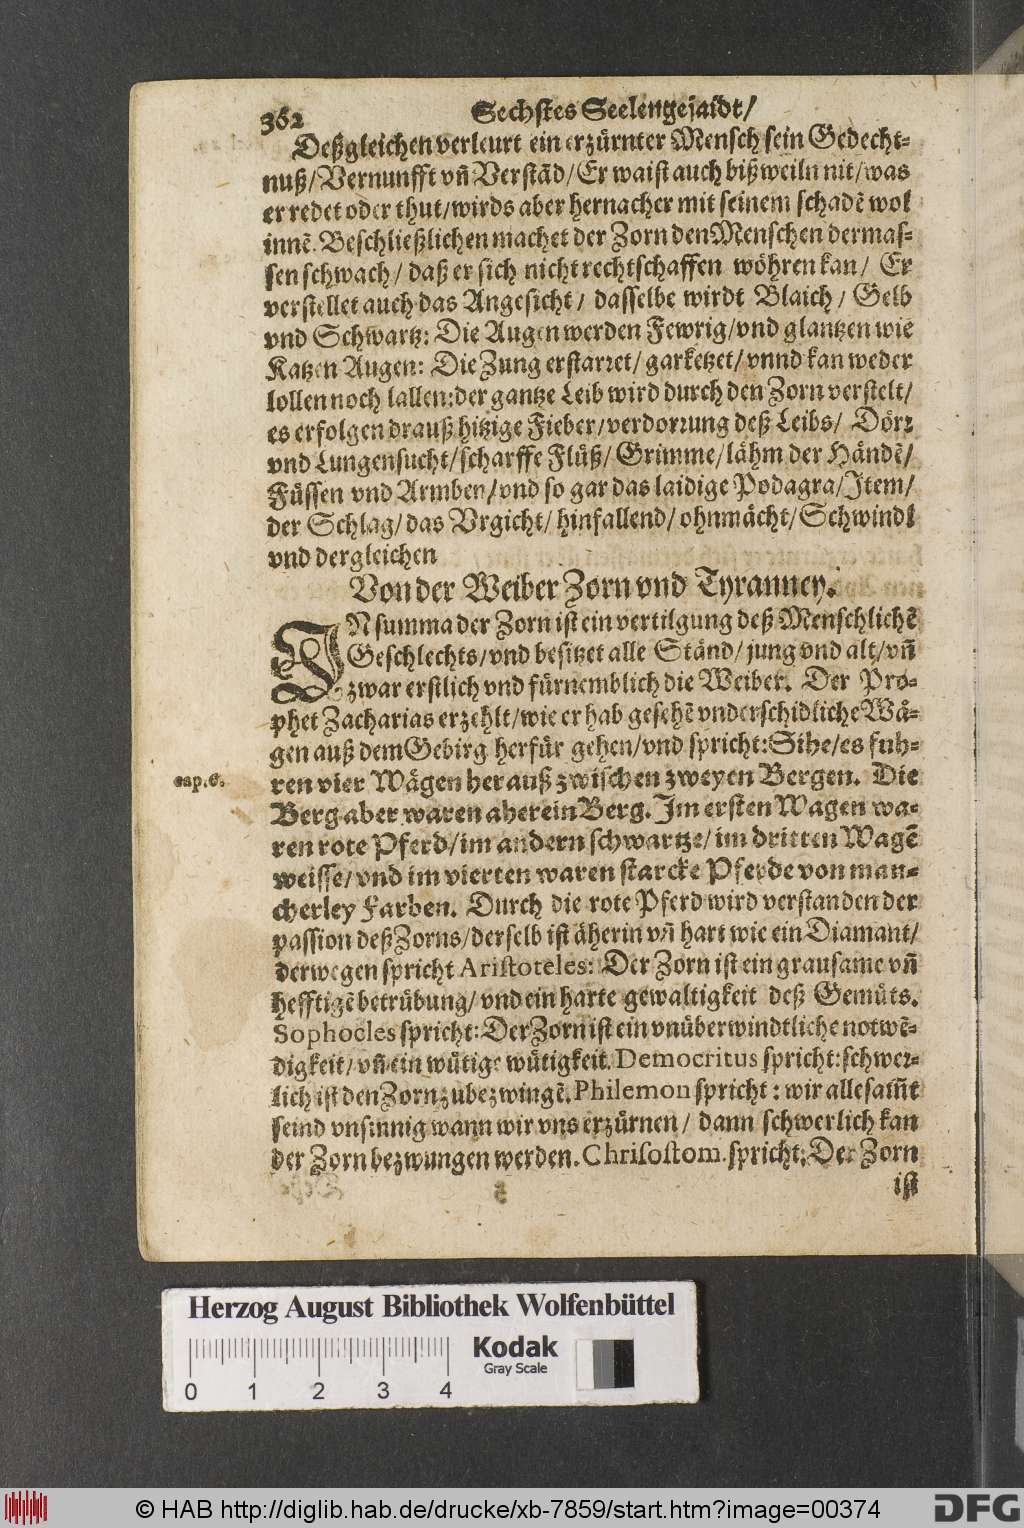 362 Sechstes Seelengejaidt/
Deßgleichen verleurt ein erzürnter Mensch sein Gedecht-
nuß/ Vernunfft vñ Verstād/ Er waist auch bißweiln nit/ was
er redet oder thut/ wirds aber hernacher mit seinem schadē wol
innē. Beschließlichen machet der Zorn den Menschen dermas-
sen schwach/ daß er sich nicht rechtschaffen wöhren kan/ Er
verstellet auch das Angesicht/ dasselbe wirdt Blaich/ Gelb
vnd Schwartz: Die Augen werden Fewrig/ vnd glantzen wie
Katzen Augen: Die Zung erstarret/ garketzet/ vnnd kan weder
lollen noch lallen: der gantze Leib wird durch den Zorn verstelt/
es erfolgen drauß hitzige Fieber/ verdorrung deß Leibs/ Dörr
vnd Lungensucht/ scharffe Flüß/ Grimme/ lähm der Händē/
Füssen vnd Armben/ vnd so gar das laidige Podagra/ Item/
der Schlag/ das Vrgicht/ hinfallend/ ohnmächt/ Schwindl
vnd dergleichen
Von der Weiber Zorn vnd Tyranney.
IN summa der Zorn ist ein vertilgung deß Menschlichē
Geschlechts/ vnd besitzet alle Ständ/ jung vnd alt/ vñ
zwar erstlich vnd fürnemblich die Weiber. Der Pro-
phet Zacharias erzehlt/ wie er hab gesehē vnderschidliche Wä-
gen auß dem Gebirg herfür gehen/ vnd spricht: Sihe/ es fuh-
cap. 6. ren vier Wägen herauß zwischen zweyen Bergen. Die
Berg aber waren aherein Berg. Im ersten Wagen wa-
ren rote Pferd/ im andern schwartze/ im dritten Wagē
weisse/ vnd im vierten waren starcke Pferde von man-
cherley Farben. Durch die rote Pferd wird verstanden der
passion deß Zorns/ derselb ist äherin vñ hart wie ein Diamant/
derwegen spricht Aristoteles: Der Zorn ist ein grausame vñ
hefftigē betrübung/ vnd ein harte gewaltigkeit deß Gemüts.
Sophocles spricht: Der Zorn ist ein vnüberwindtliche notwē-
digkeit/ vñ ein wütige wütigkeit. Democritus spricht: schwer-
lich ist den Zorn zubezwingē. Philemon spricht: wir alle sam̃t
seind vnsinnig wann wir vns erzürnen/ dann schwerlich kan
der Zorn bezwungen werden. Chrisostom. spricht: Der Zorn
ist
Herzog August Bibliothek Wolfenbüttel
Kodak
Gray Scale
0 1 2 3 4
© HAB http://diglib.hab.de/drucke/xb-7859/start.htm?image=00374
DFG